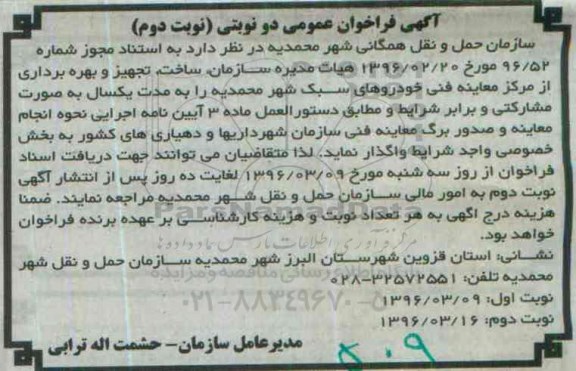 آگهی فراخوان عمومی دو نوبتی (نوبت دوم)
سازمان حمل و نقل همگانی شهر محمدیه در نظر دارد به استناد مجوز شماره
۹۶/۵۲ مورخ ۱۳۹۶/۰۲/۲۰ هیات مدیره سازمان، ساخت، تجهیز و بهره برداری
از مرکز معاینه فنی خودروهای سبک شهر محمدیه را به مدت یکسال به صورت
مشارکتی و برابر شرایط و مطابق دستورالعمل ماده ۳ آیین نامه اجرایی نحوه انجام
معاینه و صدور برگ معاینه فنی سازمان شهرداریها و دهیاری های کشور به بخش
خصوصی واجد شرایط واگذار نماید. لذا متقاضیان می توانند جهت دریافت اسناد
فراخوان از روز سه شنبه مورخ ۱۳۹۶/۰۳/۰۹ لغایت ده روز پس از انتشار آگهی
نوبت دوم به امور مالی سازمان حمل و نقل شهر محمدیه مراجعه نمایند. ضمنا
هزینه درج آگهی به هر تعداد نوبت و هزینه کارشناسی بر عهده برنده فراخوان
خواهد بود.
نشانی: استان قزوین شهرستان البرز شهر محمدیه سازمان حمل و نقل شهر
محمدیه تلفن: ۳۲۵۷۲۵۵۱-۰۲۸
۰۲۱-۸۸۳۴۹۶۷۰-۵
نوبت اول: ۱۳۹۶/۰۳/۰۹
نوبت دوم: ۱۳۹۶/۰۳/۱۶
مدیرعامل سازمان- حشمت اله ترابی